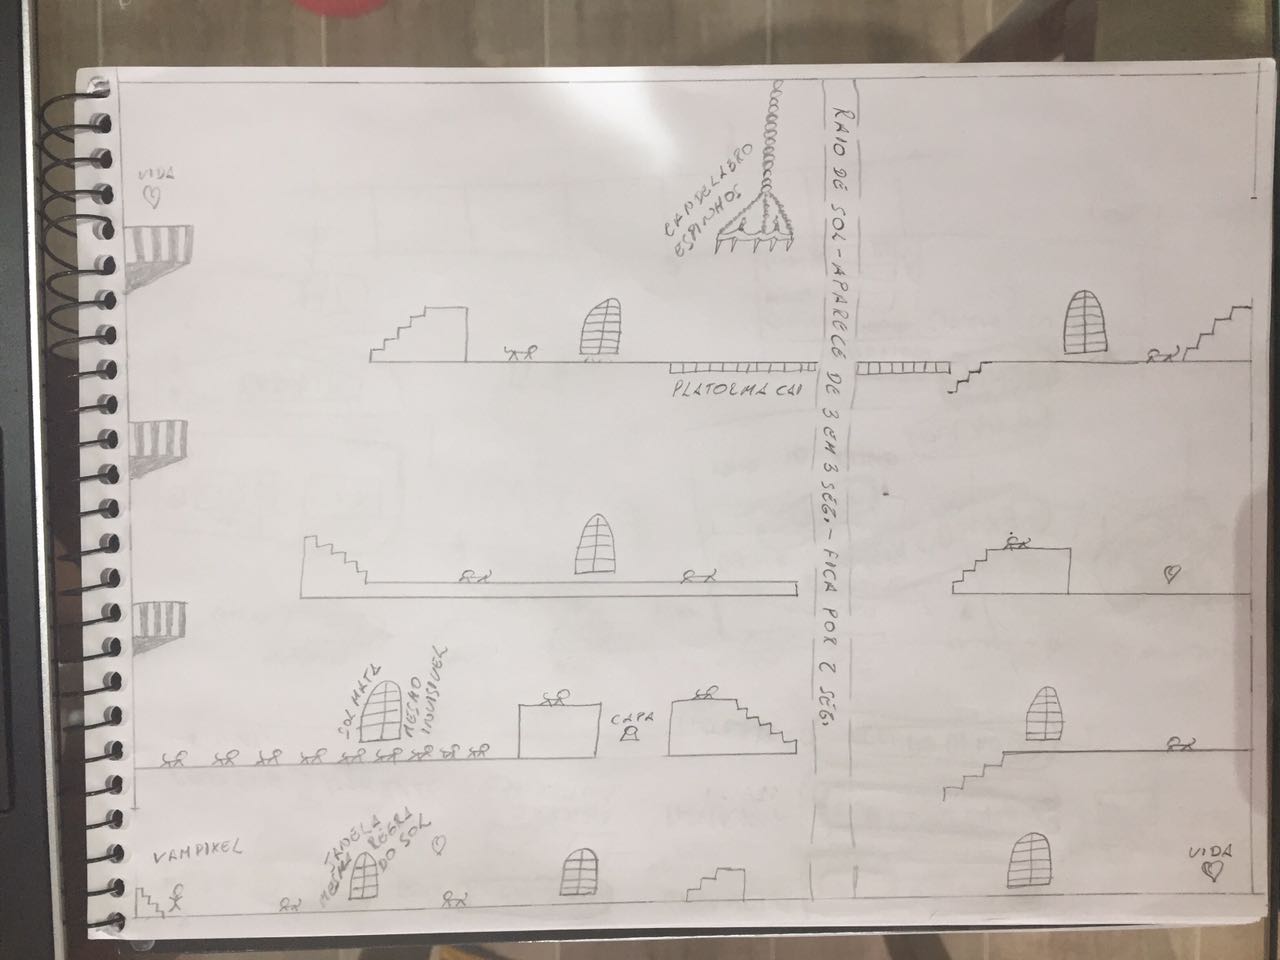 VIDA
CANDELABRO
ESPINHOS
RAIO DE SOL - APARECE DE 3 EM 3 SEG. - FICA POR 2 SEG.
PLATORMA CAI
SOL MATA
MESMO
INVISIVEL
CAPA
VAMPIXEL
JANELA
MESMA REGRA
DO SOL
VIDA